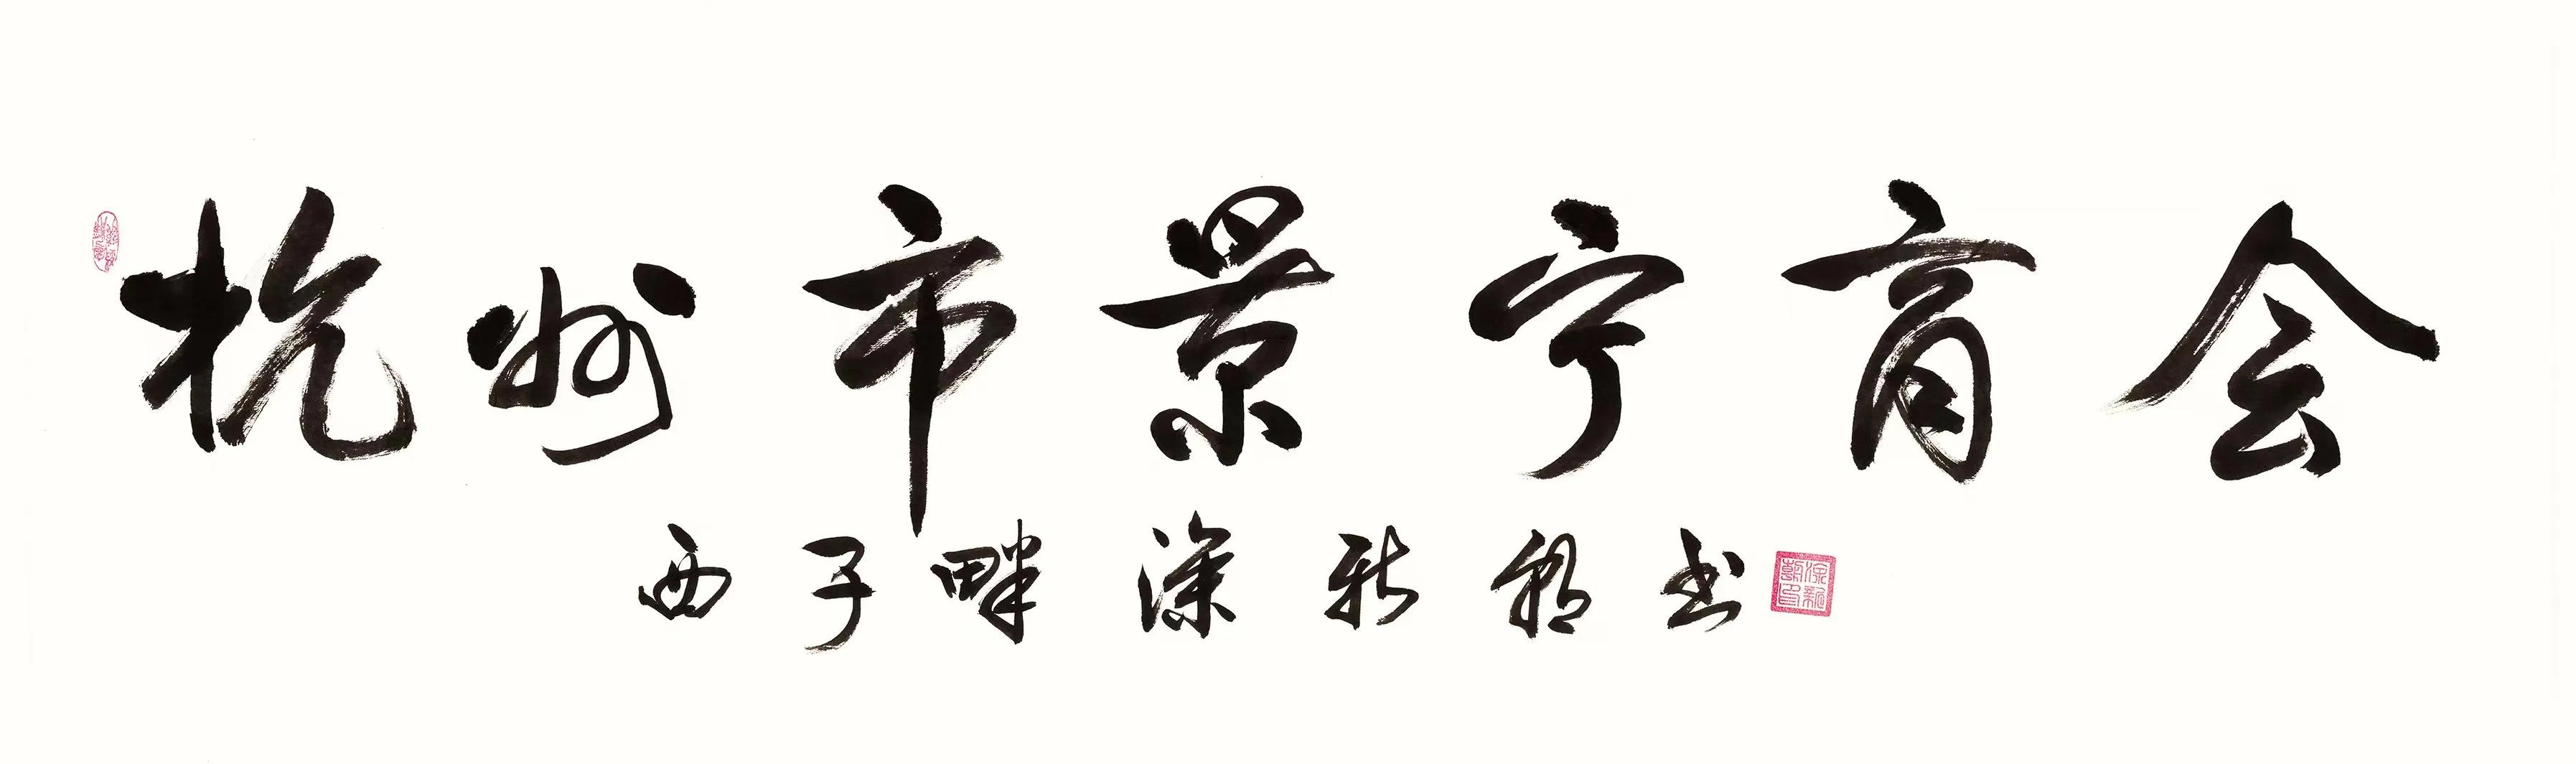 杭州市景宁商会
西子畔深新朝书